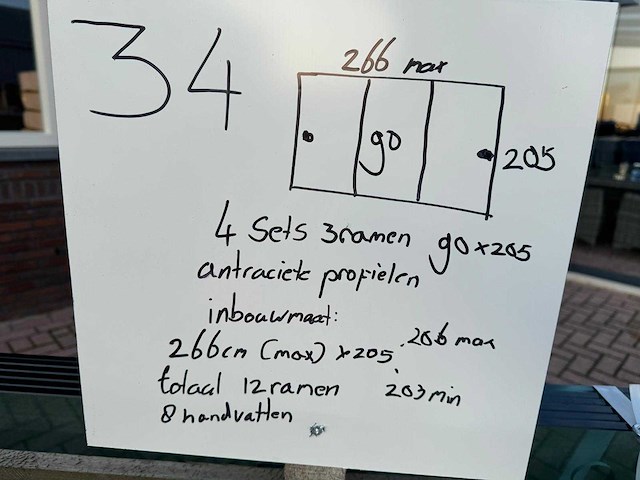 34
266 max
90
205
4 Sets 3 ramen 90 x 205
antraciek profielen
inbouwmaat:
266cm (max) x 205 . 206 max
totaal 12 ramen 203 min
8 handvatten